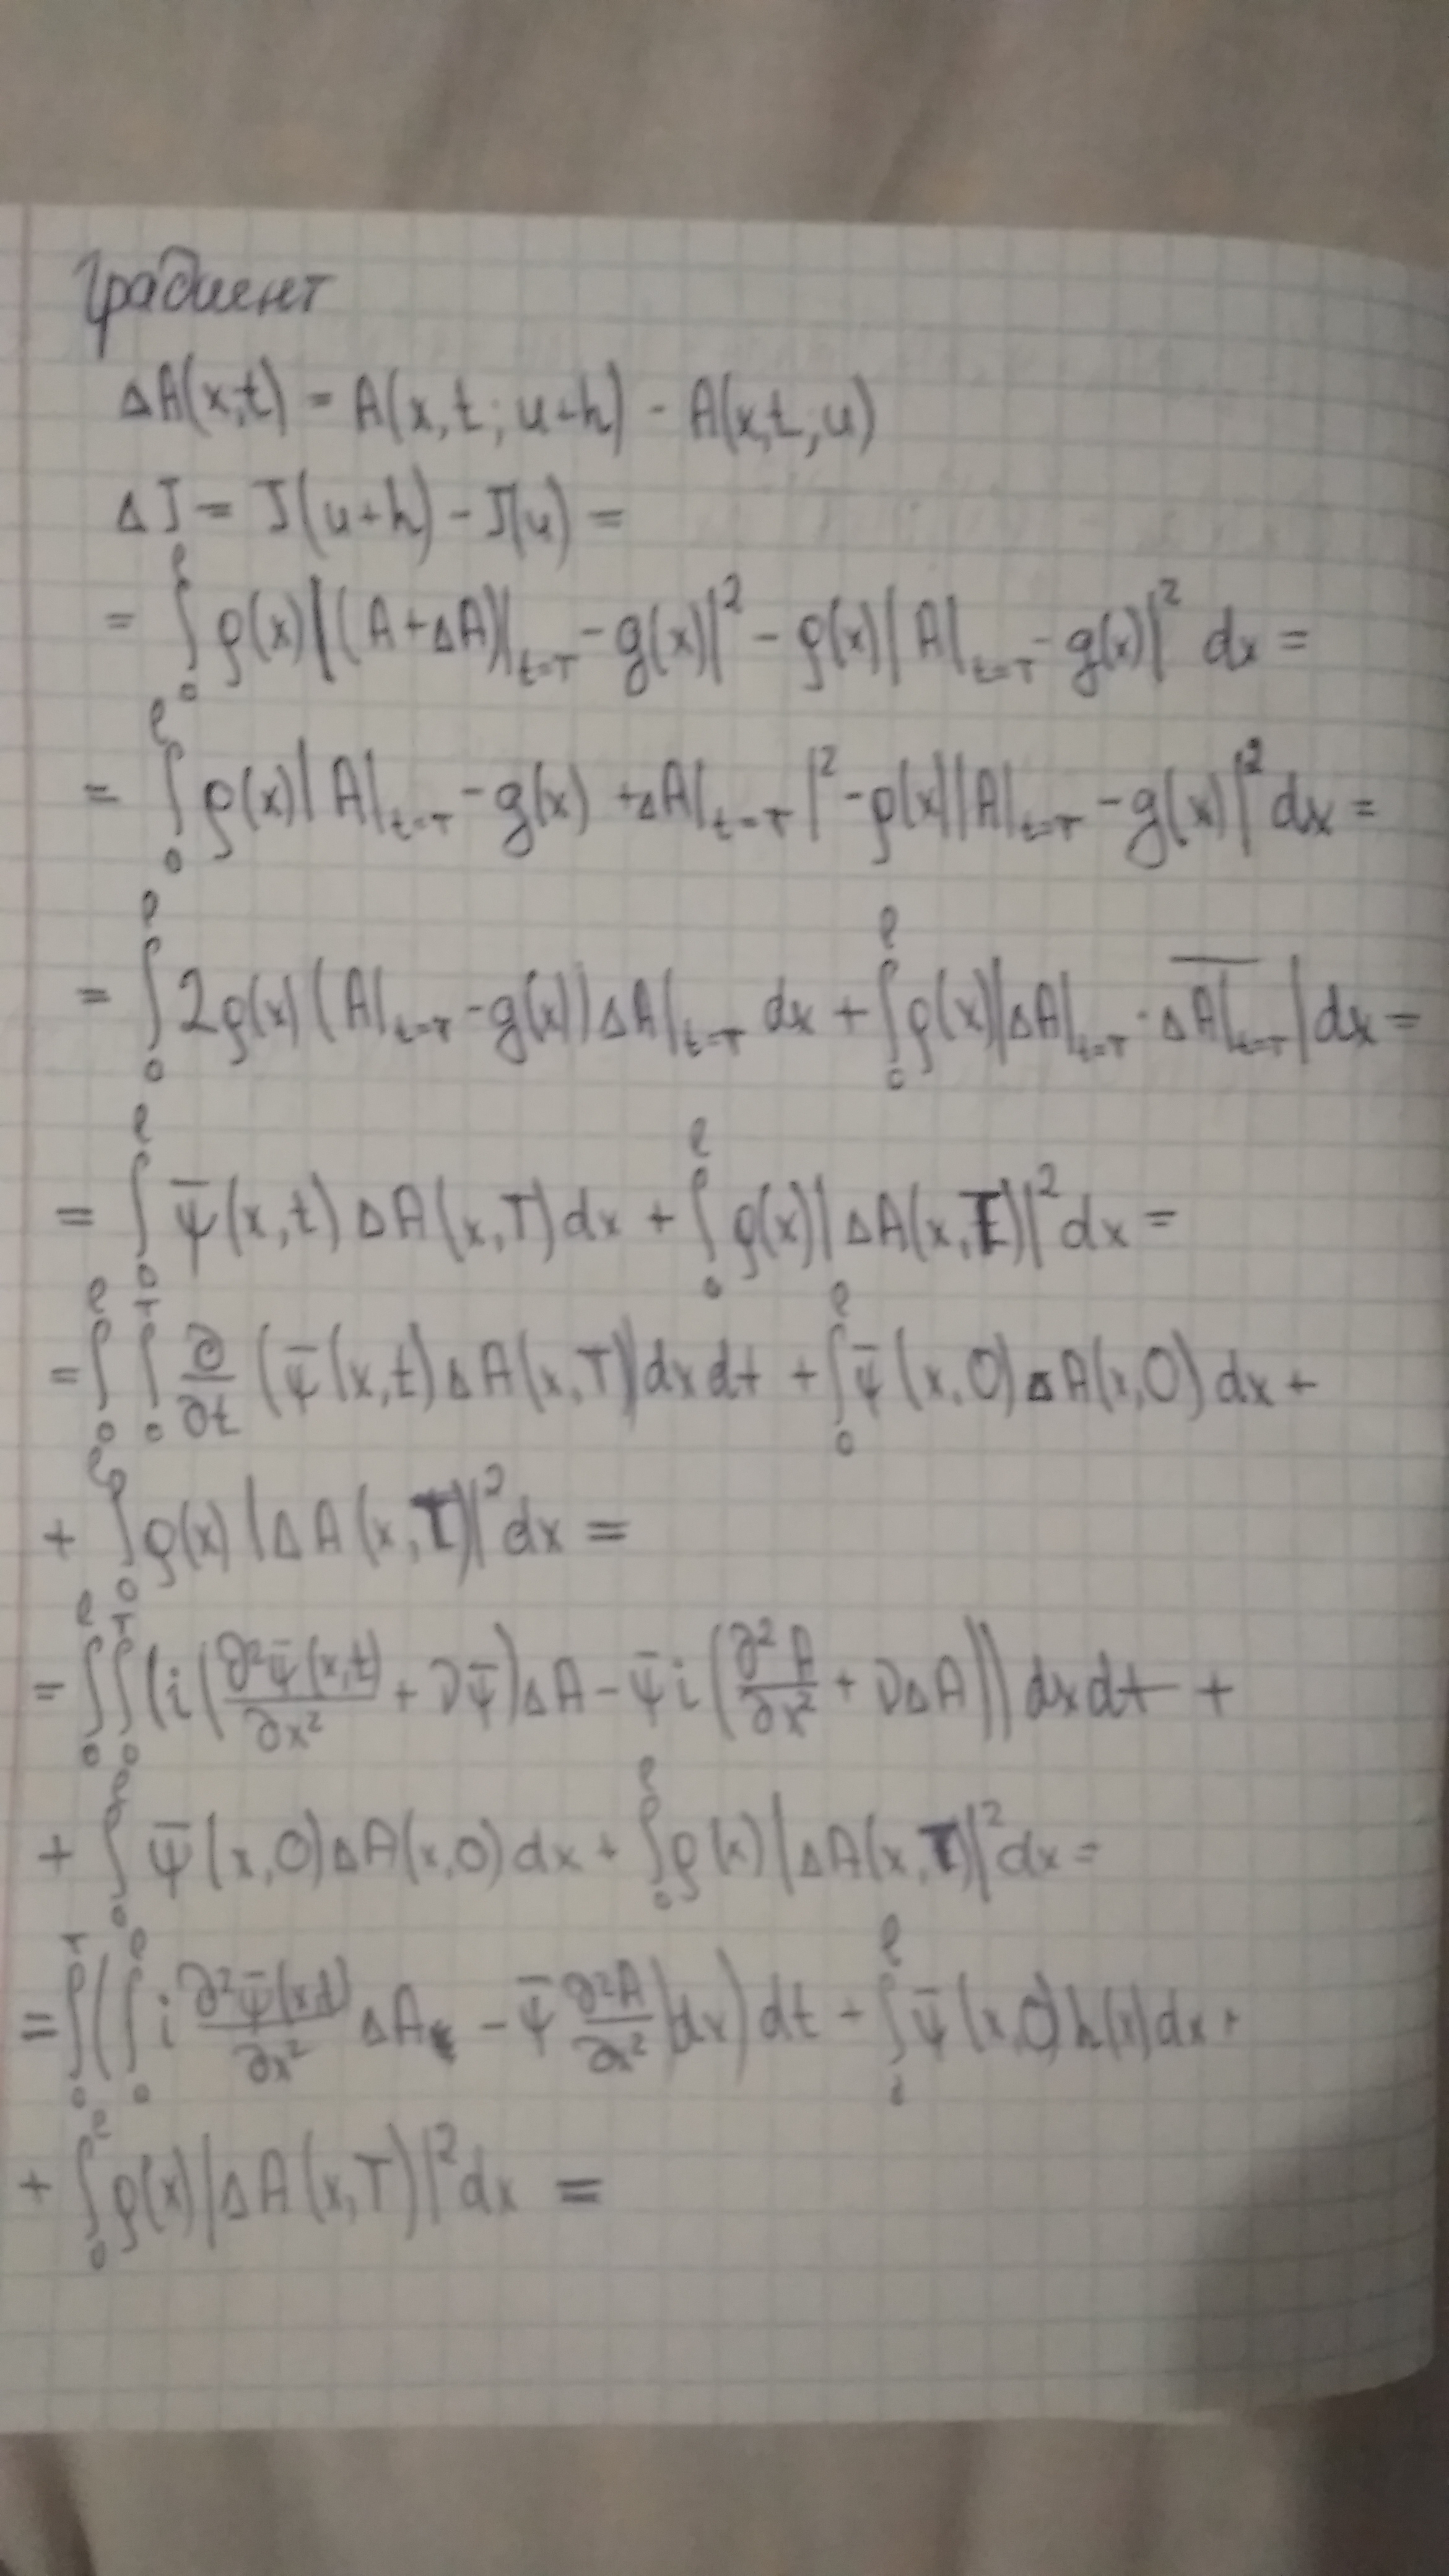 Градиент
ΔA(x,t) = A(x,t; u+h) - A(x,t,u)
ΔJ = J(u+h) - J(u) =
= ∫₀^ℓ ρ(x)|(A+ΔA)|_{t=T} - g(x)|² - ρ(x)|A|_{t=T} - g(x)|² dx =
= ∫₀^ℓ ρ(x)|A|_{t=T} - g(x) + ΔA|_{t=T}|² - ρ(x)|A|_{t=T} - g(x)|² dx =
= ∫₀^ℓ 2ρ(x)(A|_{t=T} - g(x))ΔA|_{t=T} dx + ∫₀^ℓ ρ(x)|ΔA|_{t=T} · \overline{ΔA|_{t=T}}|dx =
= ∫₀^ℓ ψ̄(x,t)ΔA(x,T)dx + ∫₀^ℓ ρ(x)|ΔA(x,T)|²dx =
= ∫₀^ℓ ∫₀^T ∂/∂t (ψ̄(x,t)ΔA(x,T))dxdt + ∫₀^ℓ ψ̄(x,0)ΔA(x,0)dx +
+ ∫₀^ℓ ρ(x)|ΔA(x,T)|²dx =
= ∫₀^ℓ ∫₀^T (i(∂²ψ̄(x,t)/∂x² + Dψ̄)ΔA - ψ̄i(∂²A/∂x² + DΔA))dxdt +
+ ∫₀^ℓ ψ̄(x,0)ΔA(x,0)dx + ∫₀^ℓ ρ(x)|ΔA(x,T)|²dx =
= ∫₀^T (∫₀^ℓ i ∂²ψ̄(x,t)/∂x² ΔA - ψ̄ ∂²A/∂x² )dx)dt + ∫ ψ̄(x,0)h(x)dx +
+ ∫₀^ℓ ρ(x)|ΔA(x,T)|²dx =